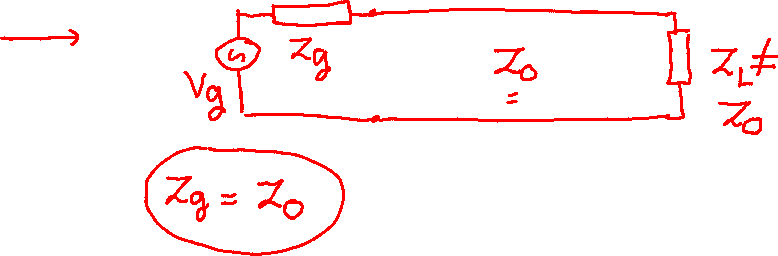 Zg
Vg
Z0
=
ZL ≠
Z0
Zg = Z0